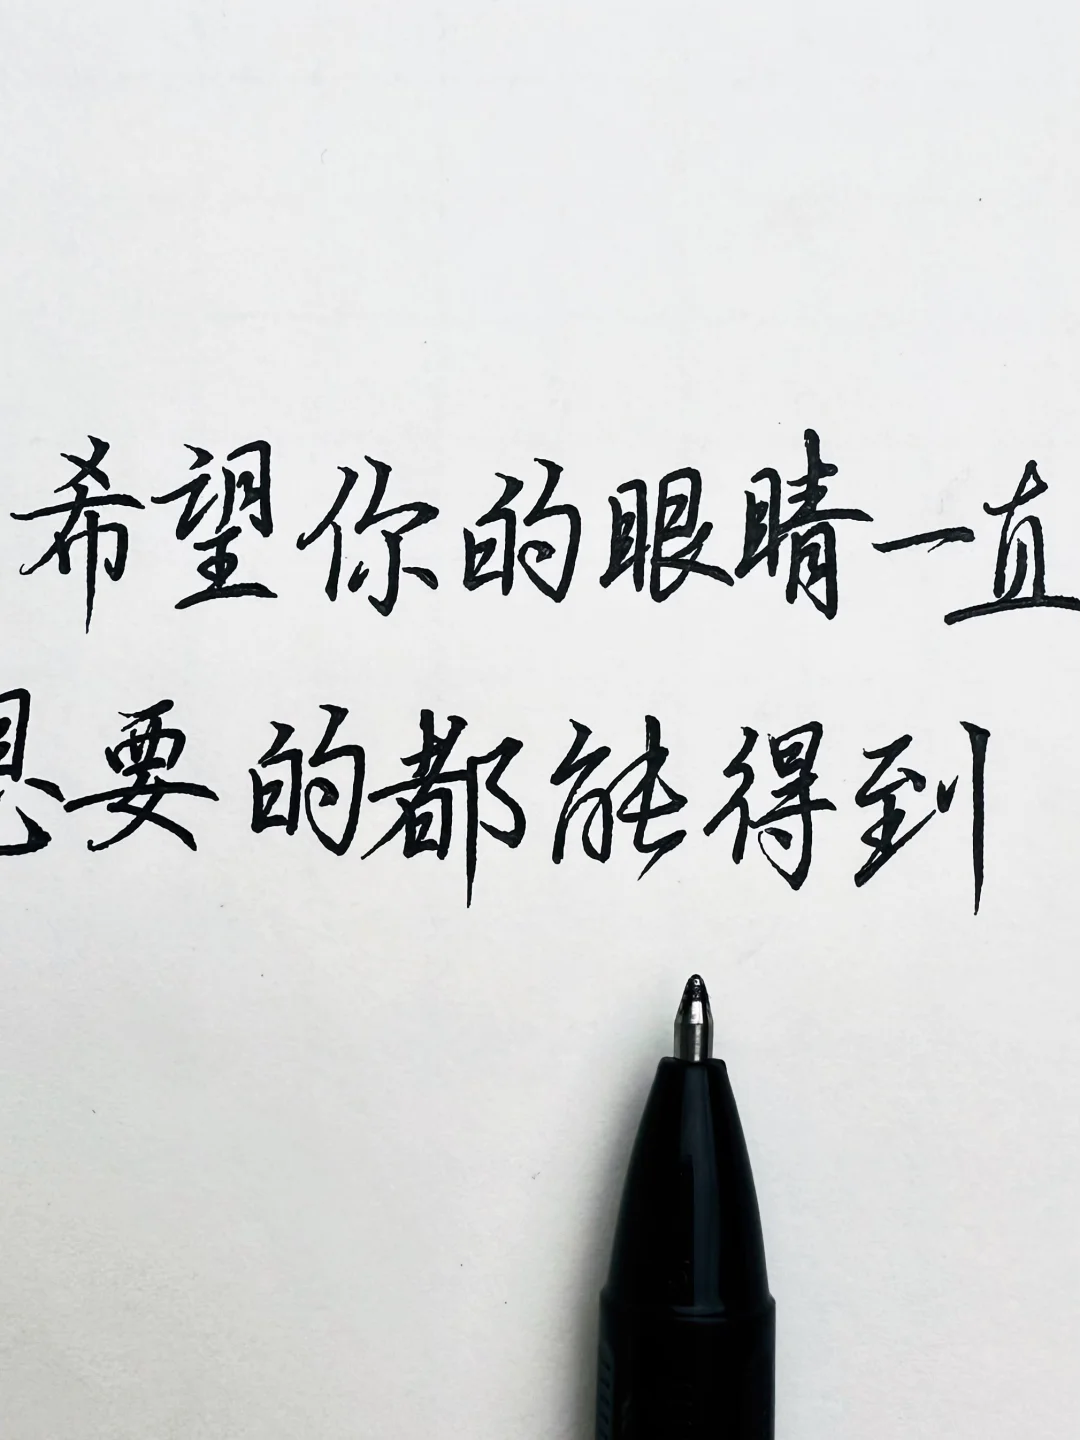 希望你的眼睛一直
想要的都能得到